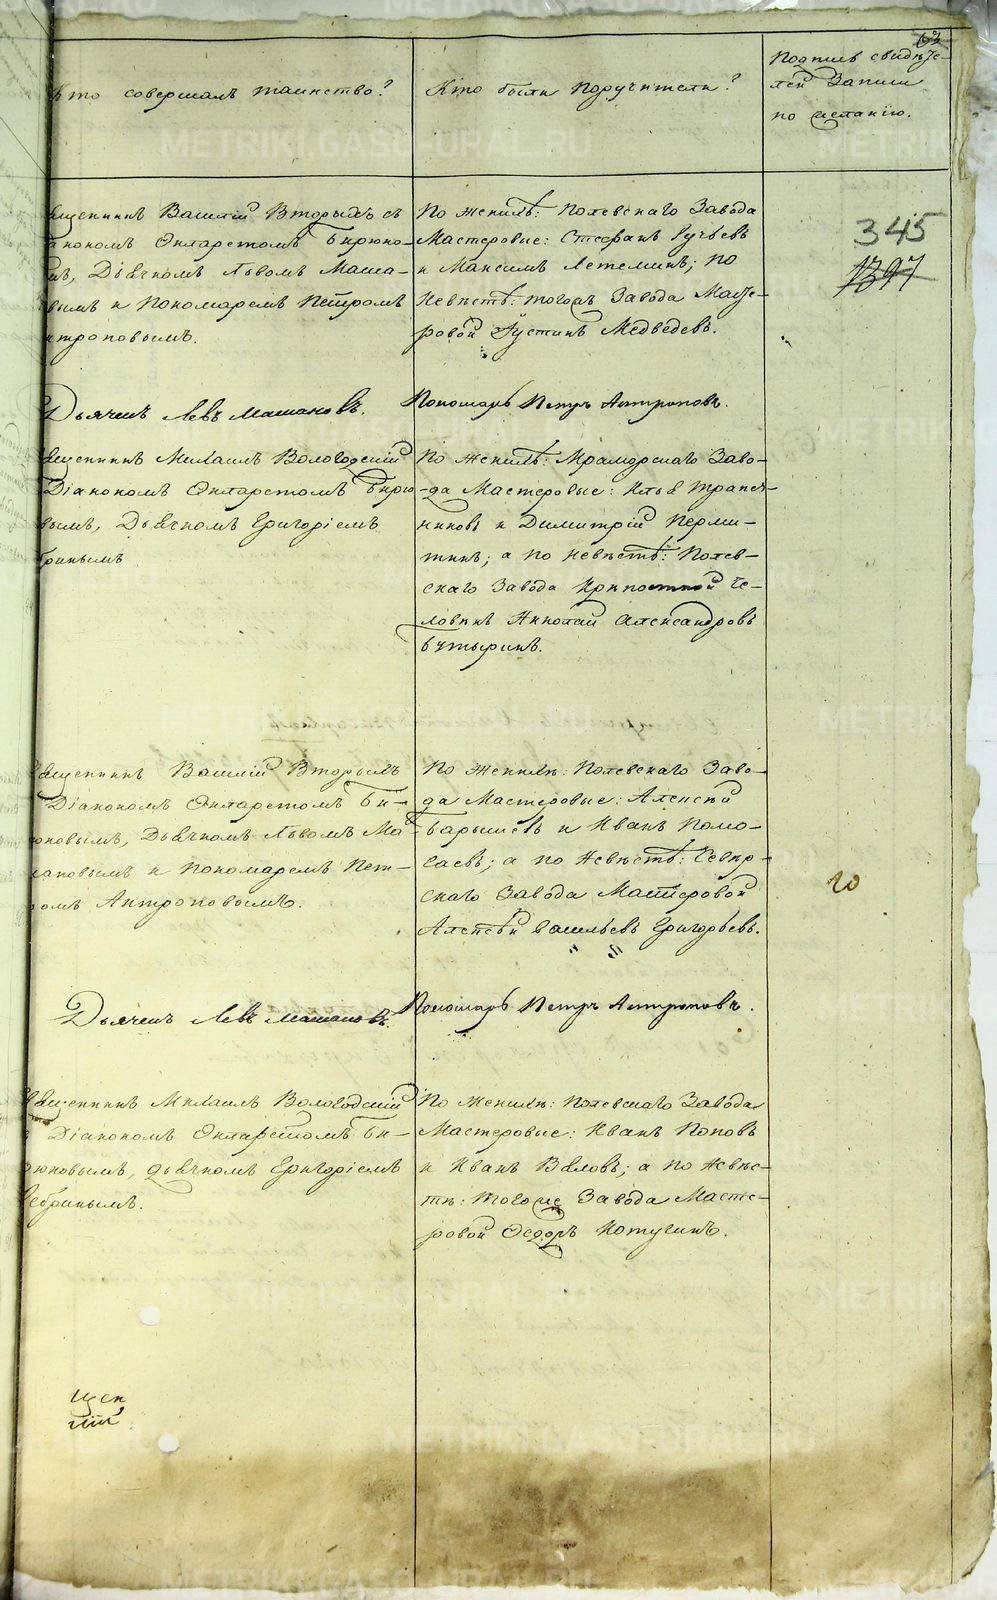 63
Кто совершалъ таинство?
Кто были поручители?
Подпись свидѣте-
лей записи
по желанію.
345
1397
Священникъ Василій Вторыхъ съ
Діакономъ Филаретомъ Бирюко-
вымъ, Дьячкомъ Львомъ Маша-
новымъ и Пономаремъ Петромъ
Антроповымъ.
По женихѣ: Полевскаго Завода
Мастеровые: Стефанъ Ручьевъ
и Максимъ Летеминъ; по
Невѣстѣ: тогожъ Завода Масте-
ровой Іустинъ Медведевъ.
Дьячекъ Левъ Машановъ.
Пономарь Петръ Антроповъ.
Священникъ Михаилъ Вологодскій
Діакономъ Филаретомъ Бирю-
ковымъ, Дьячкомъ Григоріемъ
По женихѣ: Мраморскаго Заво-
да Мастеровые: Илья Трапез-
никовъ и Димитрій Перми-
тинъ; а по невѣстѣ: Полев-
скаго Завода Крѣпостной Че-
ловѣкъ Николай Александровъ
Бутыринъ.
Священникъ Василій Вторыхъ
Діакономъ Филаретомъ Би-
рюковымъ, Дьячкомъ Львомъ Ма-
шановымъ и Пономаремъ Пет-
ромъ Антроповымъ.
По женихѣ: Полевскаго Заво-
да Мастеровые: Алексѣй
Барышевъ и Иванъ Помо-
саевъ; а по Невѣстѣ: Северс-
скаго Завода Мастеровой
Алексѣй Васильевъ Григорьевъ.
20
Дьячекъ Левъ Машановъ.
Пономарь Петръ Антроповъ.
Священникъ Михаилъ Вологодскій
Діакономъ Филаретомъ Би-
рюковымъ, дьячкомъ Григоріемъ
По женихѣ: Полевскаго Завода
Мастеровые: Иванъ Поповъ
и Иванъ Вяловъ; а по Невѣс-
тѣ: тогоже Завода Масте-
ровой Ѳедоръ Котугинъ.
щен
гій
METRIKI.GASO-URAL.RU